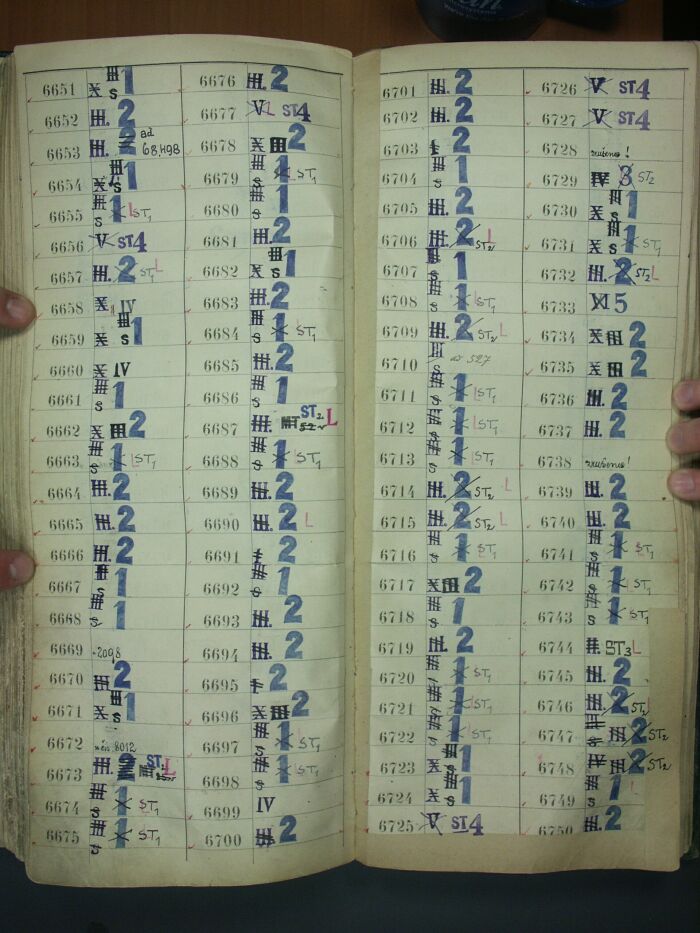 6651 X S 1
6652 III. 2
6653 III. 2 ad 68, H98
6654 X S 1
6655 S 1 L ST1
6656 V ST4
6657 III. 2 ST1 L
6658 X IV
6659 X S 1
6660 X IV
6661 III S 1
6662 X III 2
6663 III S 1 L ST1
6664 III. 2
6665 III. 2
6666 III. 2
6667 III S 1
6668 III S 1
6669 2098
6670 III. 2
6671 X S 1
6672 8012
6673 III. 2 ST2 L
6674 III S 1 ST1
6675 III S 1 ST1
6676 III. 2
6677 V L ST4
6678 X III 2
6679 III S 1 L ST1
6680 III S 1
6681 III. 2
6682 X III S 1
6683 III. 2
6684 III S 1 ST1
6685 III. 2
6686 III S 1
6687 III. ST2 L
6688 III S 1 L ST1
6689 III. 2
6690 III. 2 L
6691 2
6692 III S 1
6693 III. 2
6694 III. 2
6695 2
6696 X III 2
6697 III S 1 L ST1
6698 III S 1 L ST1
6699 IV
6700 III. 2
6701 III. 2
6702 III. 2
6703 2
6704 III S 1
6705 III. 2
6706 III. 2 ST2 L
6707 III S 1
6708 III S 1 L ST1
6709 III. 2 ST2 L
6710 III S ad 527
6711 III S 1 L ST1
6712 III S 1 L ST1
6713 III S 1 L ST1
6714 III. 2 ST2 L
6715 III. 2 ST2 L
6716 III S 1 L ST1
6717 X III 2
6718 III S 1
6719 III. 2
6720 III S 1 L ST1
6721 III S 1 L ST1
6722 III S 1 L ST1
6723 X III S 1
6724 X III S 1
6725 V ST4
6726 V ST4
6727 V ST4
6728 zrušeno!
6729 IV 3 ST2
6730 X III S 1
6731 X III S 1 L ST1
6732 III. 2 ST2 L
6733 XI 5
6734 X III 2
6735 X III 2
6736 III. 2
6737 III. 2
6738 zrušeno!
6739 III. 2
6740 III. 2
6741 III S 1 L ST1
6742 III S 1 L ST1
6743 III S 1 L ST1
6744 II. ST3 L
6745 III. 2
6746 III. 2 ST2 L
6747 III 2 ST2
6748 IV III 2 ST2
6749 III S 1 L
6750 III. 2